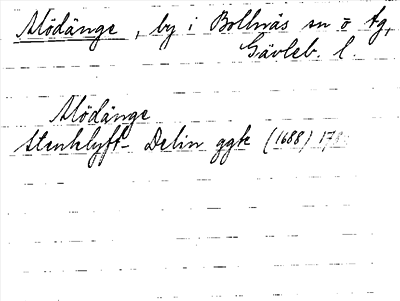 Mödänge, by i Bollnäs sn o tg,
Gävleb. l.
Mödänge
Stenklyft- Delin ggk (1688) 17